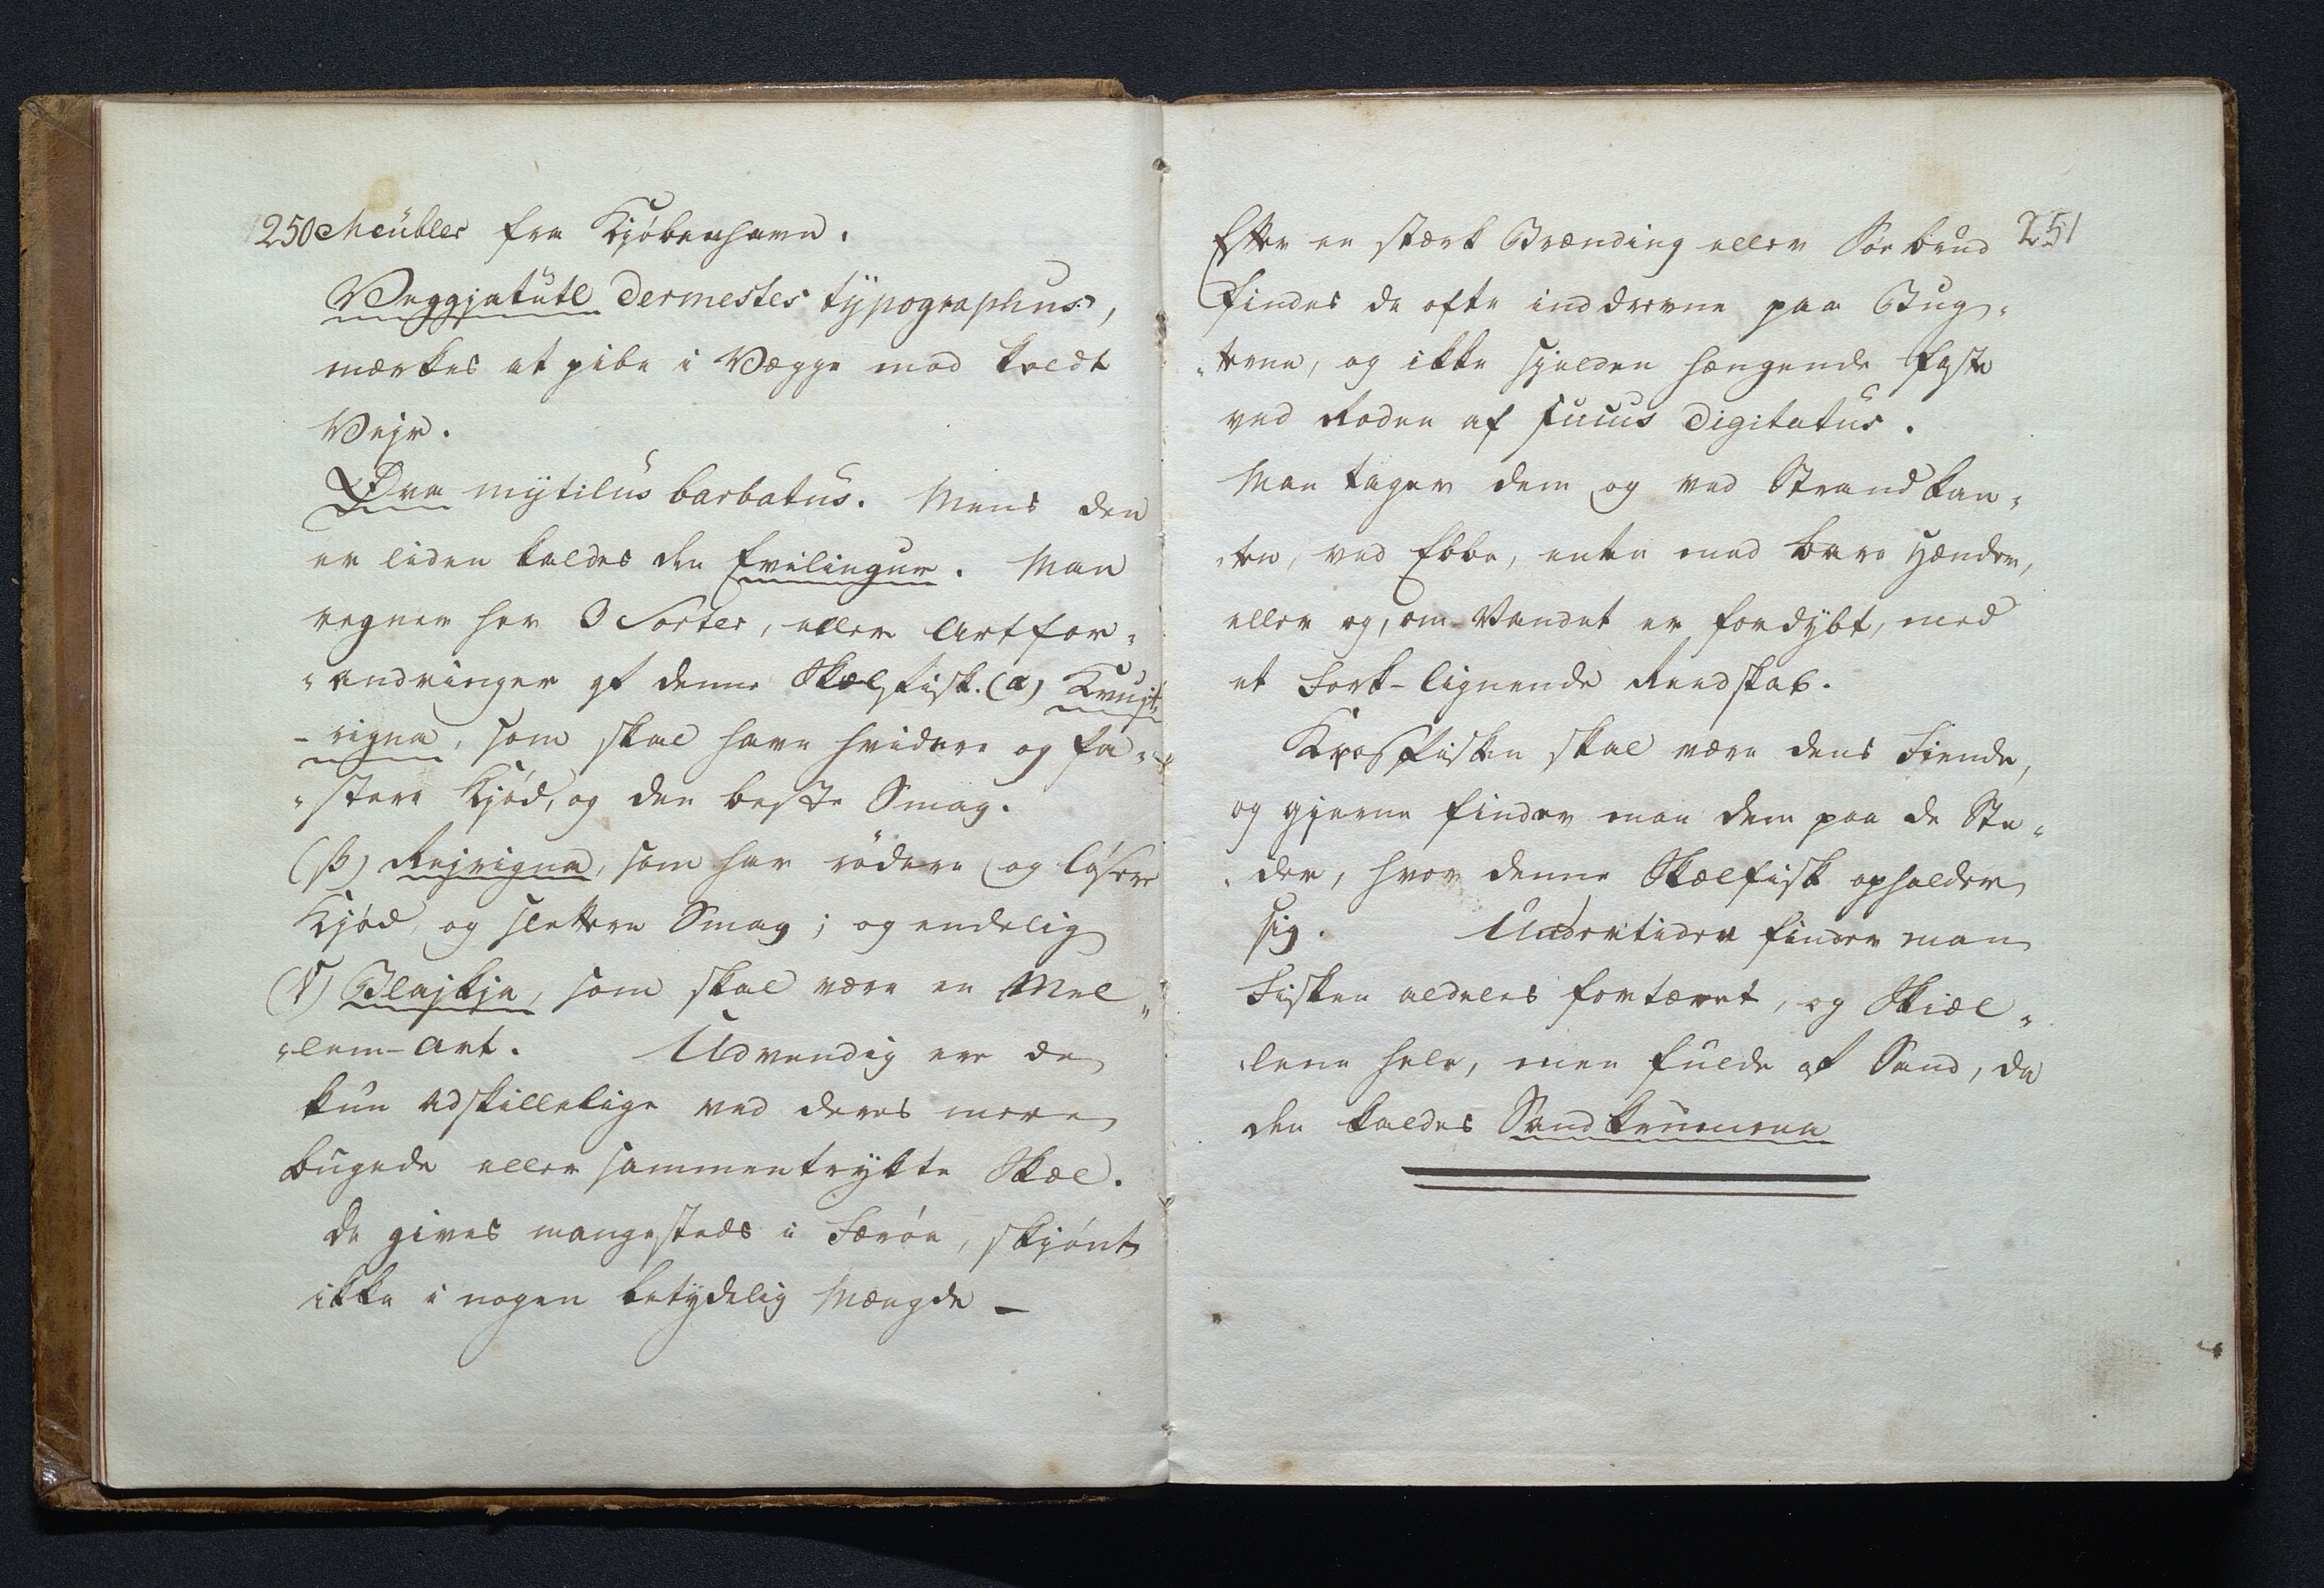 250 Meübler fra Kjöbenhavn.
Veggjatütl Dermestes typographus,
mærkes at pibe i Vægge mod koldt
Vejr.
Øva mytilüs barbatüs. Mens den
er liden kaldes den Evilingur. Man
regner her 3 Sorter, eller Artfor-
-andringer af denne Skælfisk. (α)
-rigna, som skal have hvidere og fa-
-stere Kjöd, og den beste Smag.
(β) Rejrigna, som har rödere og lösere
Kjöd, og slettere Smag; og endelig
(γ) Blajkja, som skal være en Mel-
-lem-Art. Udvendig ere de
kun adskillelige ved deres mere
bugede eller sammentrykte Skæl.
De gives mangesteds i Færöe, skjönt
ikke i nogen betydelig Mængde -
251
Efter en stærk Brænding eller Sörbrud
findes de ofte inddrevne paa Bug-
-terne, og ikke sjelden hængende faste
ved Roden af fucus digitatüs.
Man tager dem og ved Strandkan-
-ten, ved Ebbe, enten med bare Hænder,
eller og, om Vandet er fordybt, med
et Fork-lignende Reedskab.
Krosfisken skal være dens Fiende,
og gjerne finder man dem paa de Ste-
-der, hvor denne Skælfisk opholder
sig. Undertiden finder man
Fisken aldeles fortæret, og Skiæl-
-lene hele, men fulde af Sand, da
den kaldes